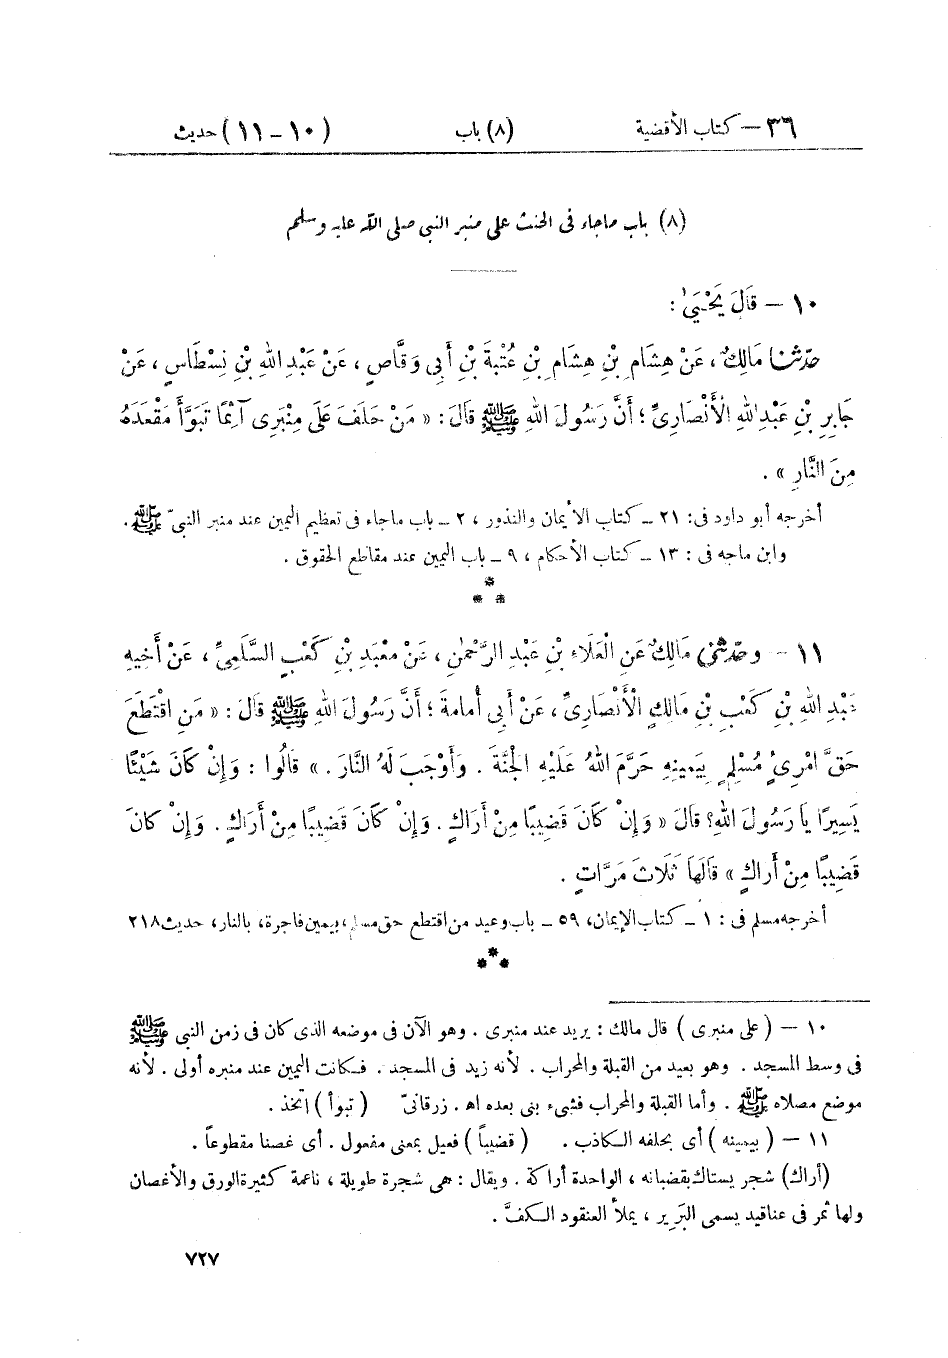 ٣٦ – كتاب الأقضية (٨) باب (١٠ – ١١) حديث
(٨) باب ماجاء فى الحنث على منبر النبي صلى الله عليه وسلم
١٠ – قَالَ يَحْيَىٰ :
حدّثنا مَالِكٌ ، عَنْ هِشَامِ بْنِ هِشَامِ بْنِ عُتْبَةَ بْنِ أَبِى وَقَّاصٍ ، عَنْ عَبْدِ اللهِ بْنِ نِسْطَاسٍ ، عَنْ
جَابِرِ بْنِ عَبْدِ اللهِ الْأَنْصَارِىِّ ؛ أَنَّ رَسُولَ اللهِ ﷺ قَالَ : « مَنْ حَلَفَ عَلَى مِنْبَرِى آثِمًا تَبَوَّأَ مَقْعَدَهُ
مِنَ النَّارِ » .
أخرجه أبو داود فى : ٢١ – كتاب الأيمان والنذور ، ٢ – باب ماجاء فى تعظيم اليمين عند منبر النبيّ ﷺ .
وابن ماجه فى : ١٣ – كتاب الأحكام ، ٩ – باب اليمين عند مقاطع الحقوق .
*
* *
١١ – وحدّثنى مَالِكٌ عَنِ الْعَلَاءِ بْنِ عَبْدِ الرَّحْمٰنِ ، عَنْ مَعْبَدِ بْنِ كَعْبٍ السَّلَمِىِّ ، عَنْ أَخِيهِ
عَبْدِ اللهِ بْنِ كَعْبِ بْنِ مَالِكٍ الْأَنْصَارِىِّ ، عَنْ أَبِى أُمَامَةَ ؛ أَنَّ رَسُولَ اللهِ ﷺ قَالَ : « مَنِ اقْتَطَعَ
حَقَّ امْرِئٍ مُسْلِمٍ بِيَمِينِهِ حَرَّمَ اللهُ عَلَيْهِ الْجَنَّةَ . وَأَوْجَبَ لَهُ النَّارَ . » قَالُوا : وَإِنْ كَانَ شَيْئًا
يَسِيرًا يَا رَسُولَ اللهِ؟ قَالَ « وَإِنْ كَانَ قَضِيبًا مِنْ أَرَاكٍ . وَإِنْ كَانَ قَضِيبًا مِنْ أَرَاكٍ . وَإِنْ كَانَ
قَضِيبًا مِنْ أَرَاكٍ » قَالَهَا ثَلَاثَ مَرَّاتٍ .
أخرجه مسلم فى : ١ – كتاب الإيمان، ٥٩ – باب وعيد من اقتطع حق مسلم، بيمين فاجرة، بالنار، حديث ٢١٨
*
* *
١٠ – ( على منبرى ) قال مالك : يريد عند منبرى . وهو الآن فى موضعه الذى كان فى زمن النبي ﷺ
فى وسط المسجد . وهو بعيد من القبلة والمحراب . لأنه زيد فى المسجد . فكانت اليمين عند منبره أولى . لأنه
موضع مصلاه ﷺ . وأما القبلة والمحراب فشىء بنى بعده اه . زرقانىّ ( تبوأ ) اتخذ .
١١ – ( بيمينه ) أى بحلفه الكاذب . ( قضيباً ) فعيل بمعنى مفعول . أى غصنا مقطوعاً .
(أراك) شجر يستاك بقضبانه ، الواحدة أراكة . ويقال : هى شجرة طويلة ، ناعمة كثيرة الورق والأغصان
ولها ثمر فى عناقيد يسمى البَرِير ، يملأ العنقود الكفَّ .
٧٢٧